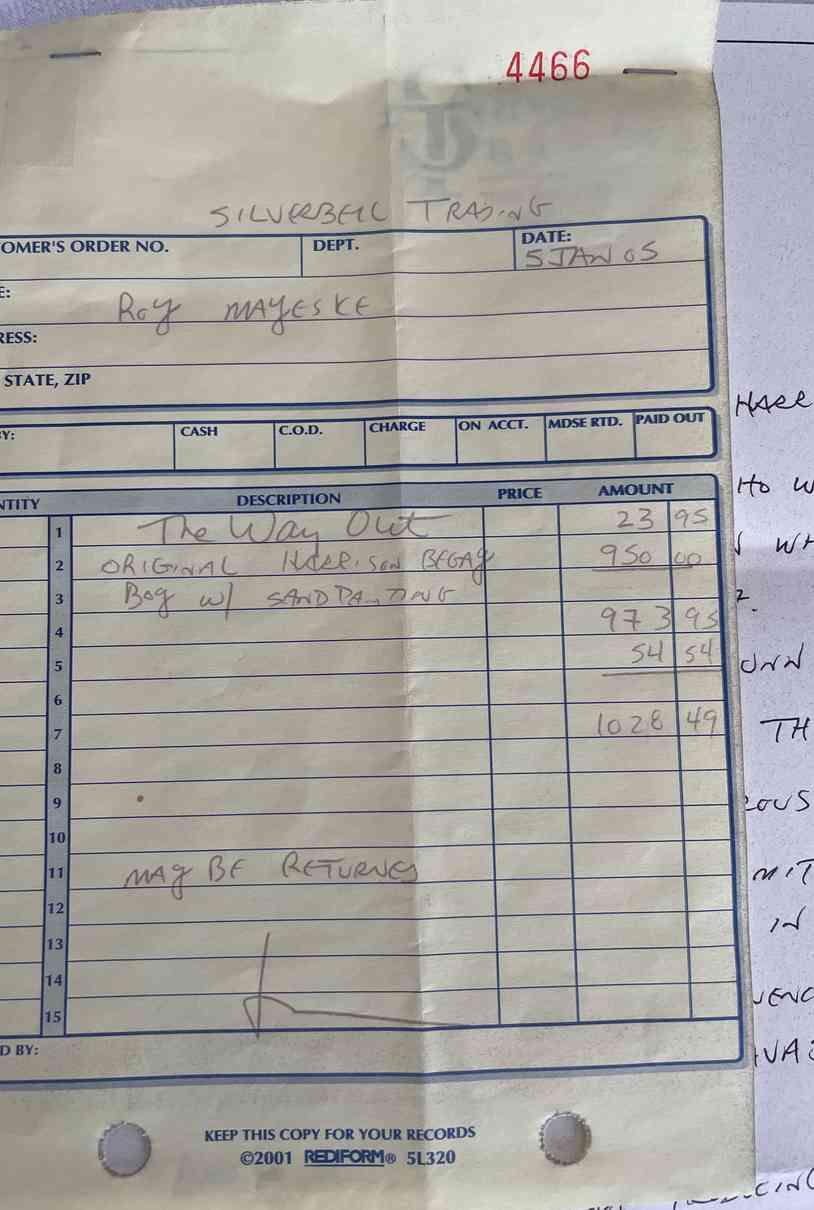 4466
SILVERBELL TRADING
OMER'S ORDER NO. DEPT. DATE:
5 JAN 05
E:
Roy MAYESKE
RESS:
STATE, ZIP
Y: CASH C.O.D. CHARGE ON ACCT. MDSE RTD. PAID OUT
NTITY DESCRIPTION PRICE AMOUNT
1 The Way Out 23 95
2 ORIGINAL HARRISON BEGAY 950 00
3 Boy w/ SANDPAINTING
4 973 95
5 54 54
6
7 1028 49
8
9
10
11 MAY BE RETURNED
12
13
14
15
D BY:
KEEP THIS COPY FOR YOUR RECORDS
©2001 REDIFORM® 5L320
HARR
HO W
WH
2.
UNN
TH
EOUS
MIT
IN
VENC